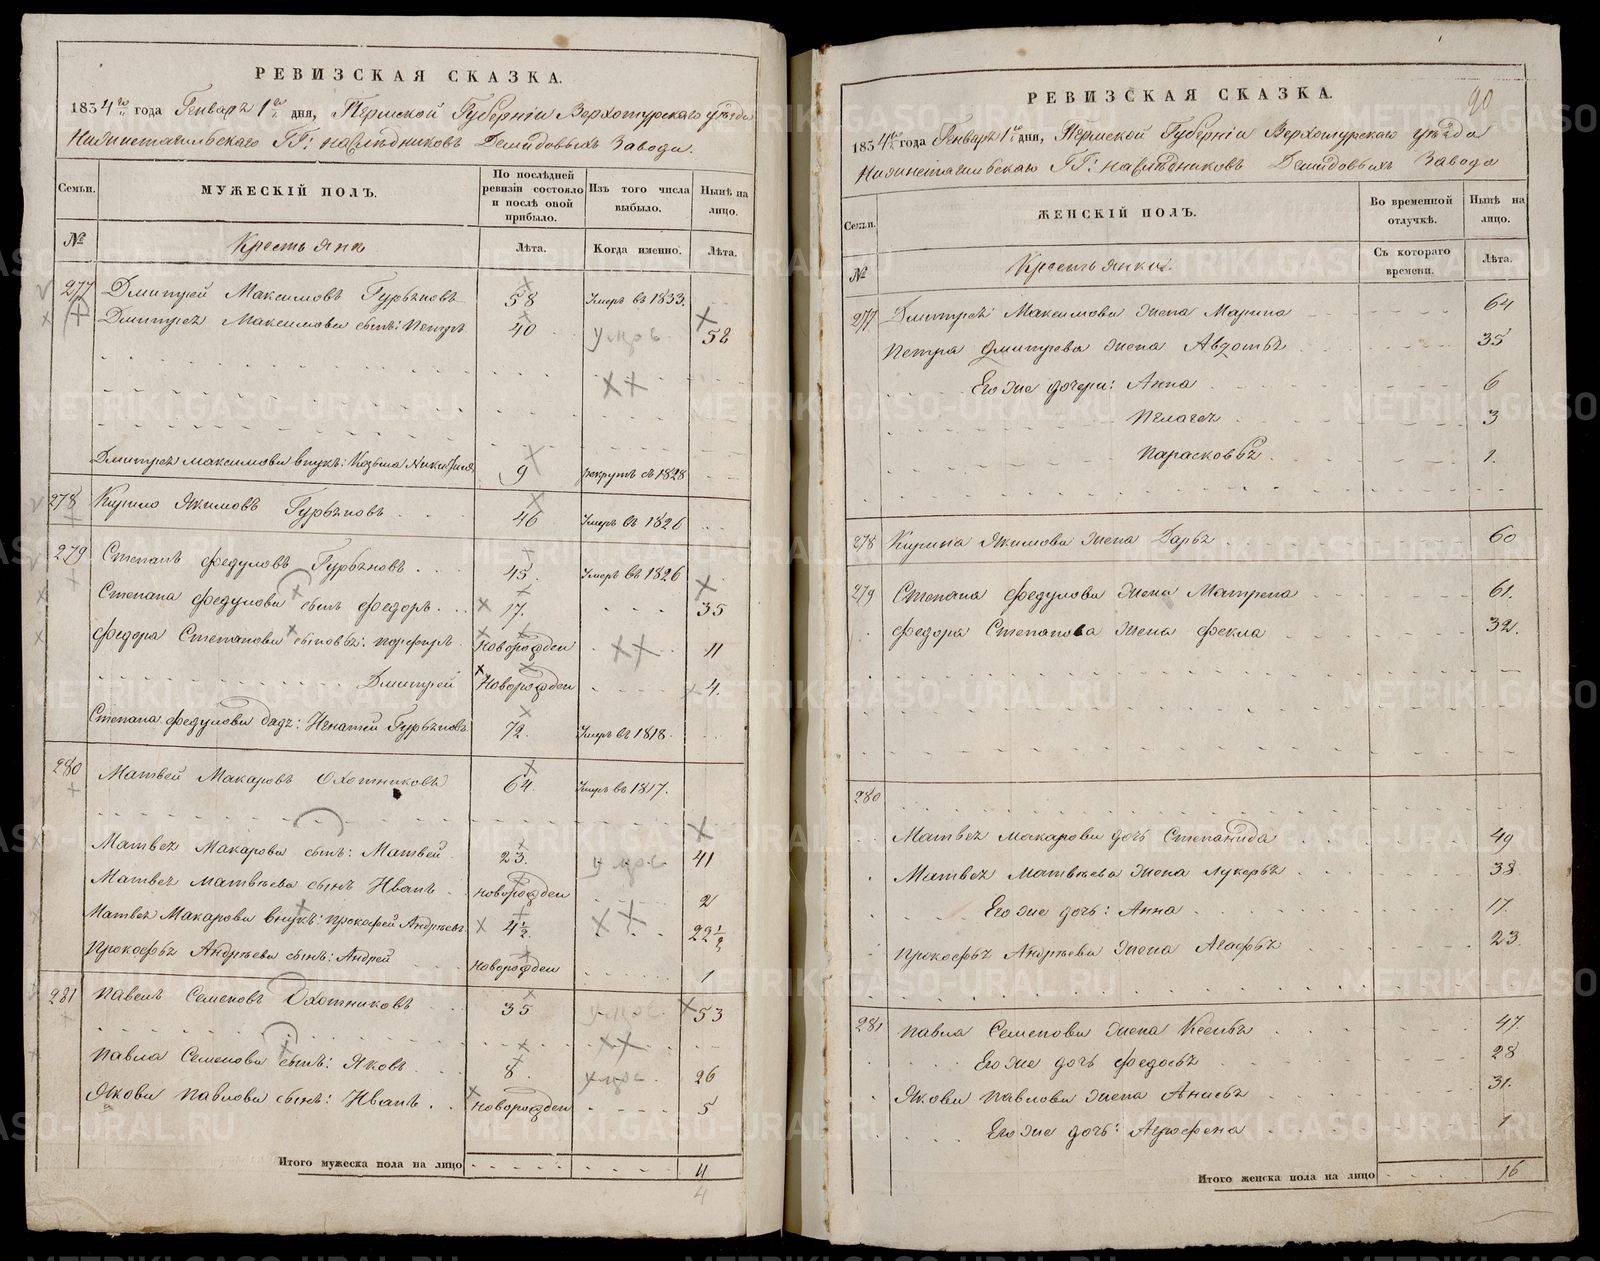 РЕВИЗСКАЯ СКАЗКА.
1834го года Генваря 1го дня, Пермской Губерніи Верхотурскаго уѣзда
Нижнетагильскаго ГГ: наслѣдниковъ Демидовыхъ Завода.
Семьи.
МУЖЕСКІЙ ПОЛЪ.
По послѣдней ревизіи состояло и послѣ оной прибыло.
Изъ того числа выбыло.
Нынѣ на лицо.
№
Крестьяня
Лѣта.
Когда именно.
Лѣта.
277 Дмитрей Максимовъ Гурьяновъ 58 Умеръ въ 1833.
Дмитрея Максимова сынъ: Петръ 40 умре 52
Дмитрея Максимова внукъ: Козьма 9 рекрутъ съ 1828
278 Кирило Якимовъ Гурьяновъ 46 Умеръ въ 1826
279 Степанъ Федуловъ Гурьяновъ 45. Умеръ въ 1826
Степана Федулова сынъ Федоръ 17. 35
Федора Степанова сыновья: Порфиръ Новорожден 11
Дмитрей Новорожден 4.
Степана Федулова дядя: Игнатей Гурьяновъ 72. Умеръ въ 1818.
280 Матвей Макаровъ Охотниковъ 64. Умеръ въ 1817.
Матвея Макарова сынъ: Матвей 23. умре 41
Матвея Матвѣева сынъ Иванъ новорожден 2
Матвея Макарова внукъ: Прокофей Андреевъ 4½ 22½
Прокофья Андреева сынъ: Андрей новорожден 1
281 Павелъ Семеновъ Охотниковъ 35 умре 53
Павла Семенова сынъ: Яковъ 8. умре 26
Якова Павлова сынъ: Иванъ новорожден 5
Итого мужеска пола на лицо 11
4
90
РЕВИЗСКАЯ СКАЗКА.
1834го года Генваря 1го дня, Пермской Губерніи Верхотурскаго уѣзда
Нижнетагильскаго ГГ: наслѣдниковъ Демидовыхъ Завода
Семьи.
ЖЕНСКІЙ ПОЛЪ.
Во временной отлучкѣ.
Нынѣ на лицо.
№
Крестьянки.
Съ котораго времени.
Лѣта.
277 Дмитрея Максимова жена Марина 64
Петра Дмитрева жена Авдотья 35
Его же дочери: Анна 6
Пелагея 3
Парасковья 1.
278 Кирила Якимова жена Дарья 60
279 Степана Федулова жена Матрена 61.
Федора Степанова жена Фекла 32.
280
Матвея Макарова дочь Степанида 49
Матвея Матвѣева жена Лукерья 38
Его же дочь: Анна 17.
Прокофья Андреева жена Агафья 23.
281 Павла Семенова жена Ксенья 47.
Его же дочь Федосья 28
Якова Павлова жена Анисья 31.
Его же дочь: Агрофена 1
Итого женска пола на лицо 16
METRIKI.GASO-URAL.RU